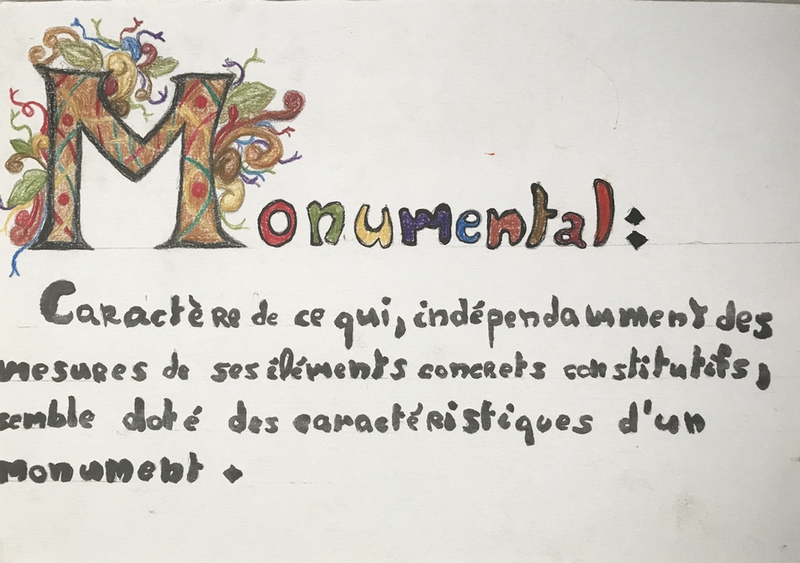 Monumental:
Caractère de ce qui, indépendamment des
mesures de ses éléments concrets constitutifs,
semble doté des caractéristiques d'un
monument.